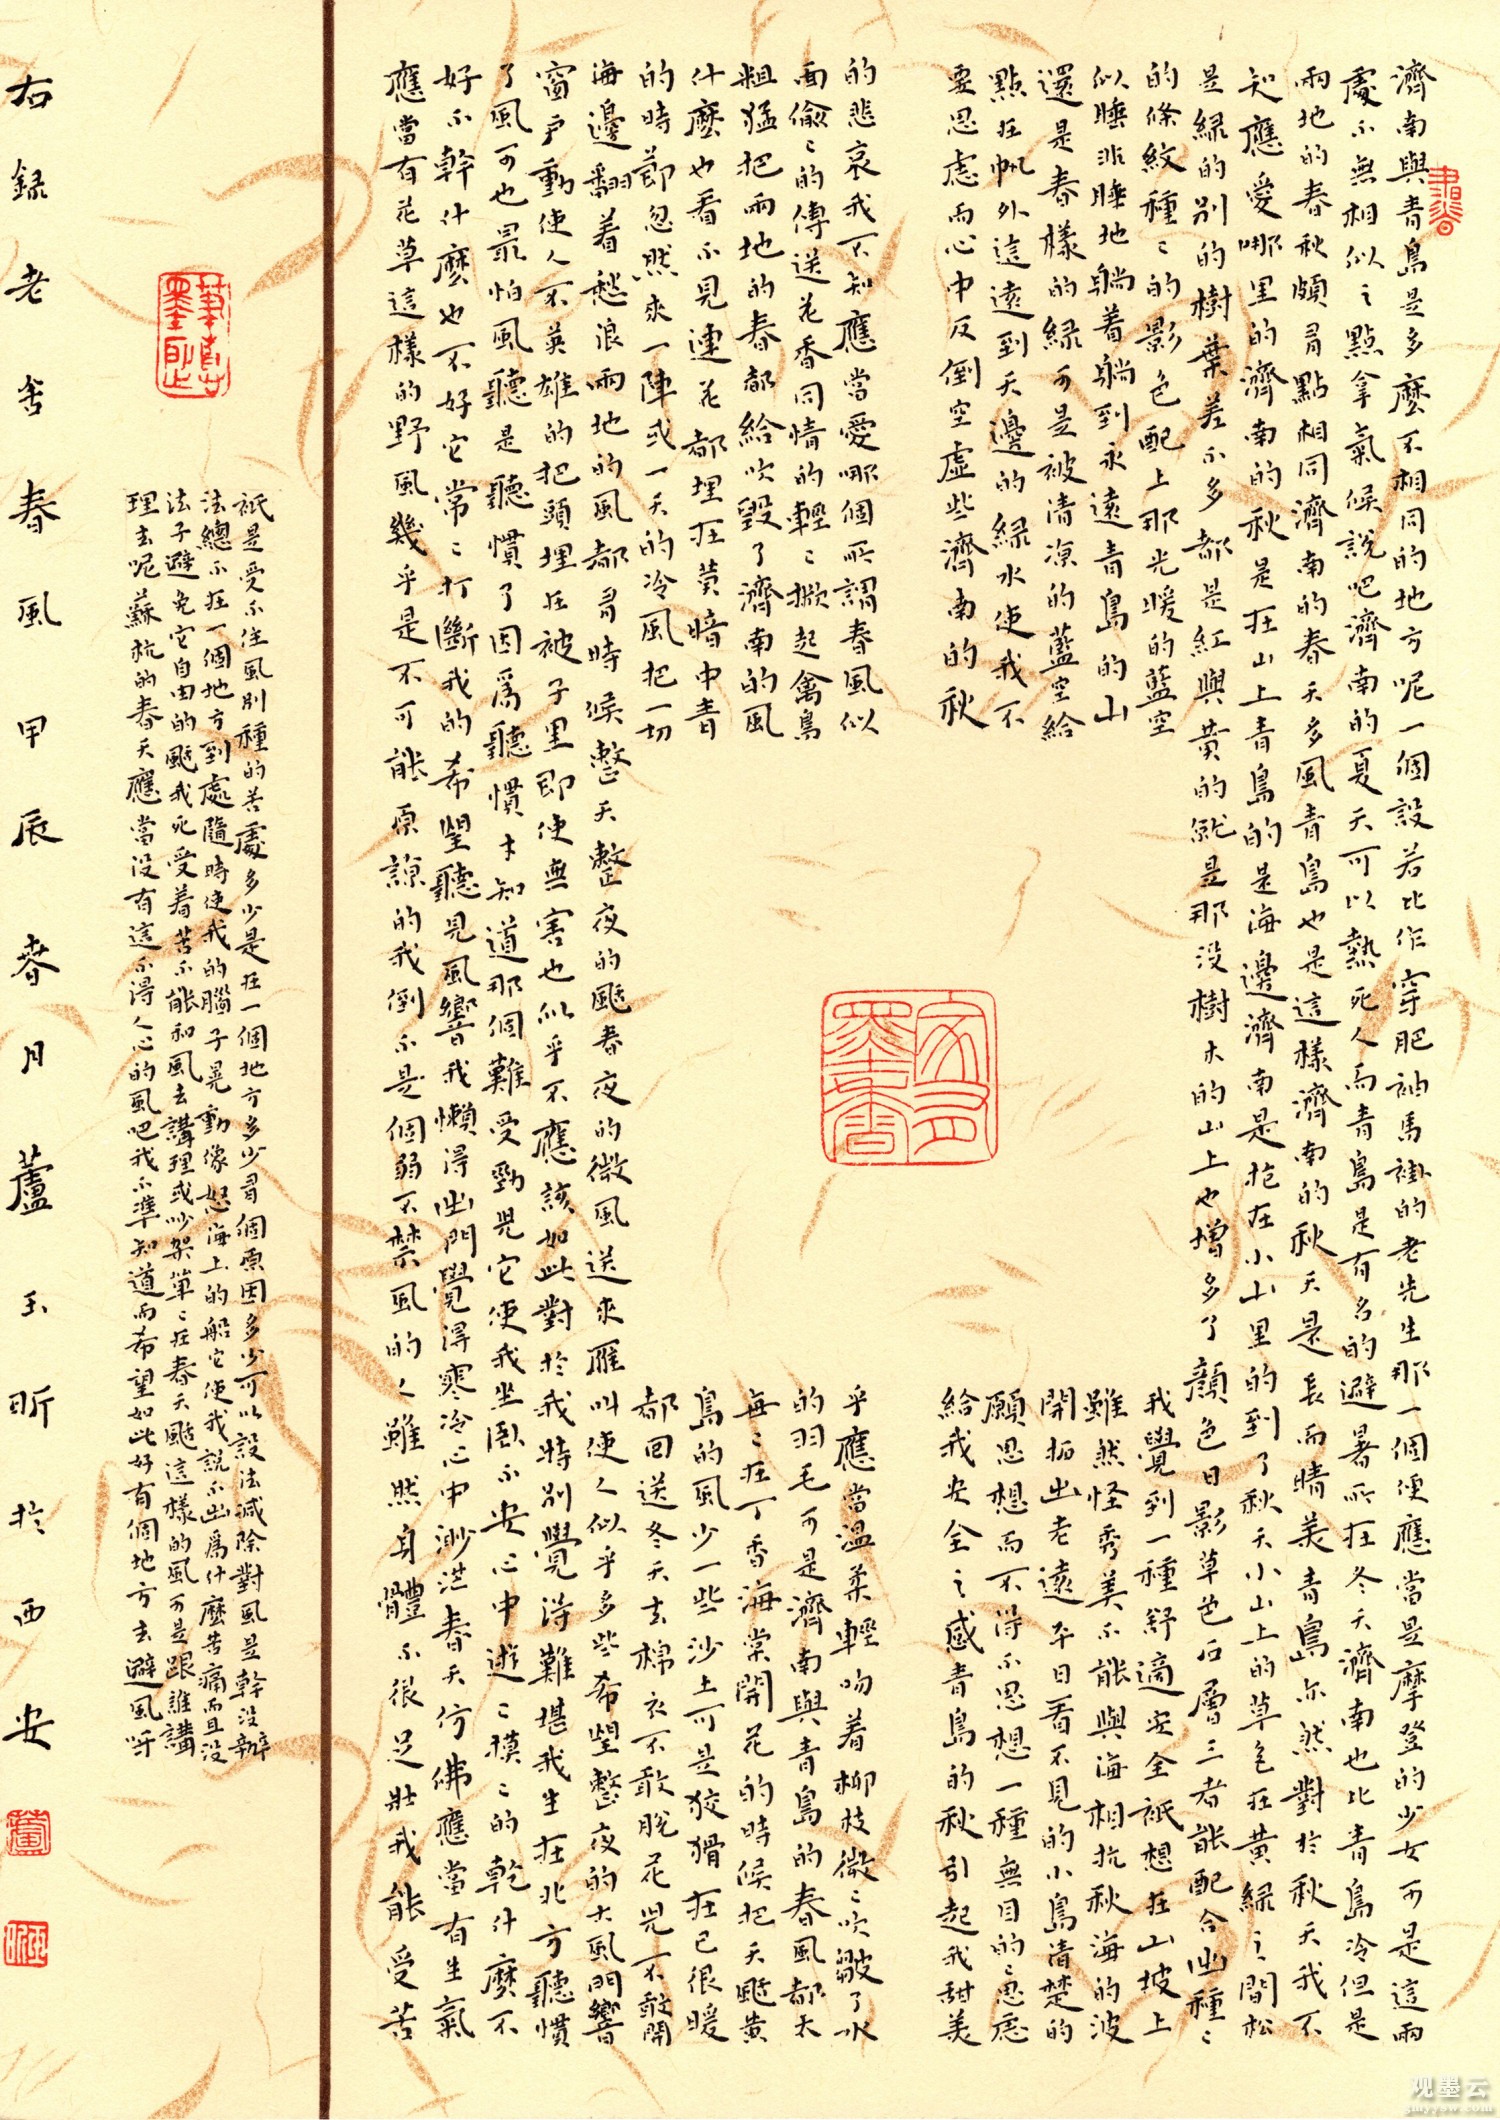 濟南與青島是多麼不相同的地方呢一個設若比作穿肥袖馬褂的老先生那一個便應當是摩登的少女可是這兩
處不無相似之點拿氣候說吧濟南的夏天可以熱死人而青島是有名的避暑所在冬天濟南也比青島冷但是
兩地的春秋頗有點相同濟南的春天多風青島也是這樣濟南的秋天是長而晴美青島亦然對於秋天我不
知應愛哪里的濟南的秋是在山上青島的是海邊濟南是抱在小山里的到了秋天小山上的草色在黃綠之間松
是綠的別的樹葉差不多都是紅與黃的就是那没樹木的山上也增多了顏色日影草色石層三者能配合出種〻
的條紋種〻的影色配上那光暖的藍空我覺到一種舒適安全衹想在山坡上
似睡非睡地躺着躺到永遠青島的山雖然怪秀美不能與海相抗秋海的波
還是春樣的綠可是被清凉的藍空給開拓出老遠平日看不見的小島清楚的
點在帆外這遠到天邊的綠水使我不願思想而不得不思想一種無目的〻思慮
要思慮而心中反倒空虛些濟南的秋給我安全之感青島的秋引起我甜美
的悲哀我不知應當愛哪個所謂春風似乎應當溫柔輕吻着柳枝微〻吹皺了水
面偷〻的傳送花香同情的輕〻掀起禽鳥的羽毛可是濟南與青島的春風都太
粗猛把兩地的春都給吹毀了濟南的風每〻在丁香海棠開花的時候把天颳黃
什麼也看不見連花都埋在黃暗中青島的風少一些沙土可是狡猾在已很暖
的時節忽然來一陣或一天的冷風把一切都回送冬天去棉衣不敢脫花兒不敢開
海邊翻着愁浪兩地的風都有時候整天整夜的颳春夜的微風送來雁叫使人似乎多些希望整夜的大風門響
窗戶動使人不英雄的把頭埋在被子里即使無害也似乎不應該如此對於我特別覺得難堪我生在北方聽慣
了風可也最怕風聽是聽慣了因爲聽慣才知道那個難受勁兒它使我坐臥不安心中遊〻摸〻的乾什麼不
好不幹什麼也不好它常〻打斷我的希望聽見風響我懶得出門覺得寒冷心中渺茫春天仿佛應當有生氣
應當有花草這樣的野風幾乎是不可能原諒的我倒不是個弱不禁風的人雖然身體不很足壯我能受苦
衹是受不住風別種的苦處多少是在一個地方多少有個原因多少可以設法減除對風是幹没辦
法總不在一個地方到處隨時使我的腦子晃動像怒海上的船它使我說不出爲什麼苦痛而且没
法子避免它自由的颳我死受着苦不能和風去講理或吵架單〻在春天颳這樣的風可是跟誰講
理去呢蘇杭的春天應當没有這不得人心的風吧我不準知道而希望如此好有個地方去避風呀
右錄老舍春風甲辰春月蘆玉昕於西安
書香
家有墨香
玉昕
观墨云
gmyyow.com